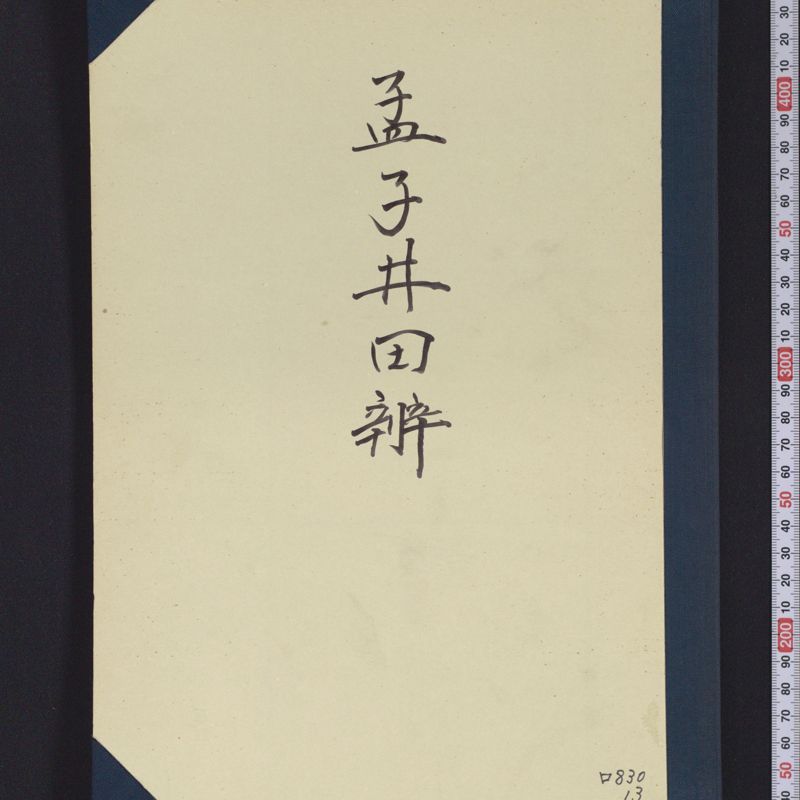 孟子井田辨
ロ830
13
30
20
10
400
90
80
70
60
50
40
30
20
10
300
90
80
70
60
50
40
30
20
10
200
90
80
70
60
50
40